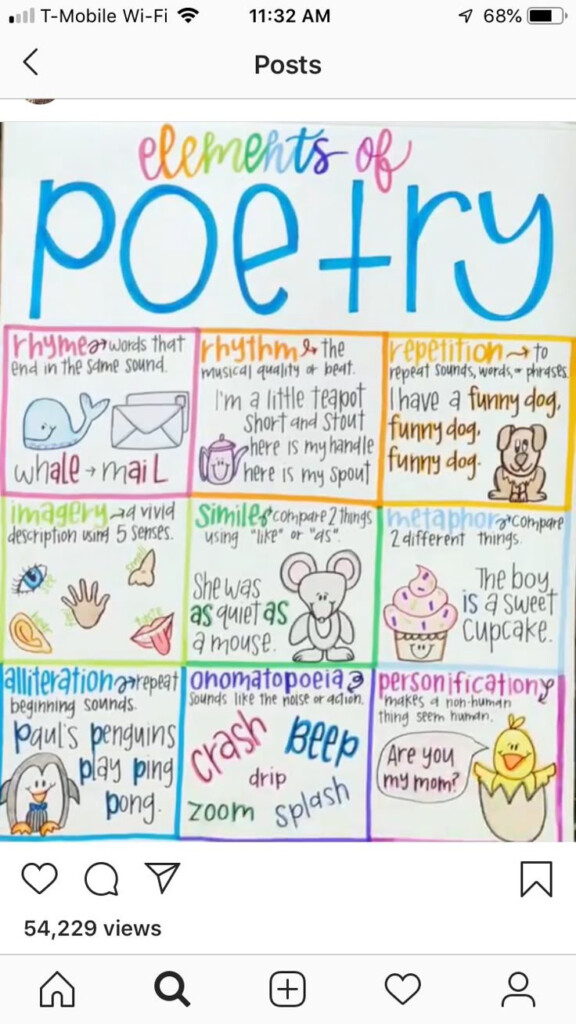 T-Mobile Wi-Fi 11:32 AM 68%
Posts
elements of
poetry
rhyme → words that
end in the same sound.
whale → mail
rhythm → the
musical quality or beat.
I'm a little teapot
Short and Stout
here is my handle
here is my spout
repetition → to
repeat sounds, words, or phrases.
I have a funny dog,
funny dog,
funny dog.
imagery → a vivid
description using 5 senses.
see
smell
hear
touch
taste
Simile → compare 2 things
using "like" or "as".
She was
as quiet as
a mouse.
metaphor → compare
2 different things.
The boy
is a sweet
cupcake.
alliteration → repeat
beginning sounds.
paul's penguins
play ping
pong.
onomatopoeia →
Sounds like the noise or action.
crash
Beep
drip
zoom
splash
personification →
makes a non-human
thing seem human.
Are you
my mom?
54,229 views